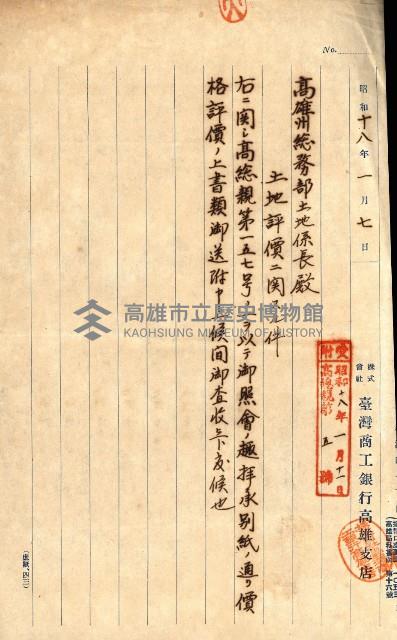 No.
昭和十八年一月七日
株式會社 臺灣商工銀行高雄支店
高雄州総務部土地係長殿
土地評價ニ関スル件
右ニ関シ高総親第一五七号ノ一ヲ以テ御照會ノ趣拝承別紙ノ通リ價
格評價ノ上書類御送附申上候間御査収被下度候也
受附
昭和十八年一月十一日
五號
高雄市立歷史博物館
KAOHSIUNG MUSEUM OF HISTORY